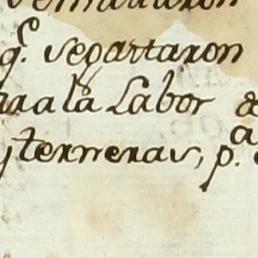 q.^e se partaron
ara la Labor
y terneras, p.^a